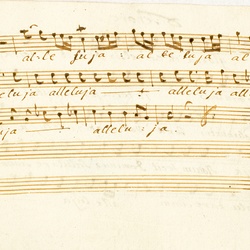 al-le luja : al le luja al
eluja alleluja — alleluja all
uja — allelu : ja .